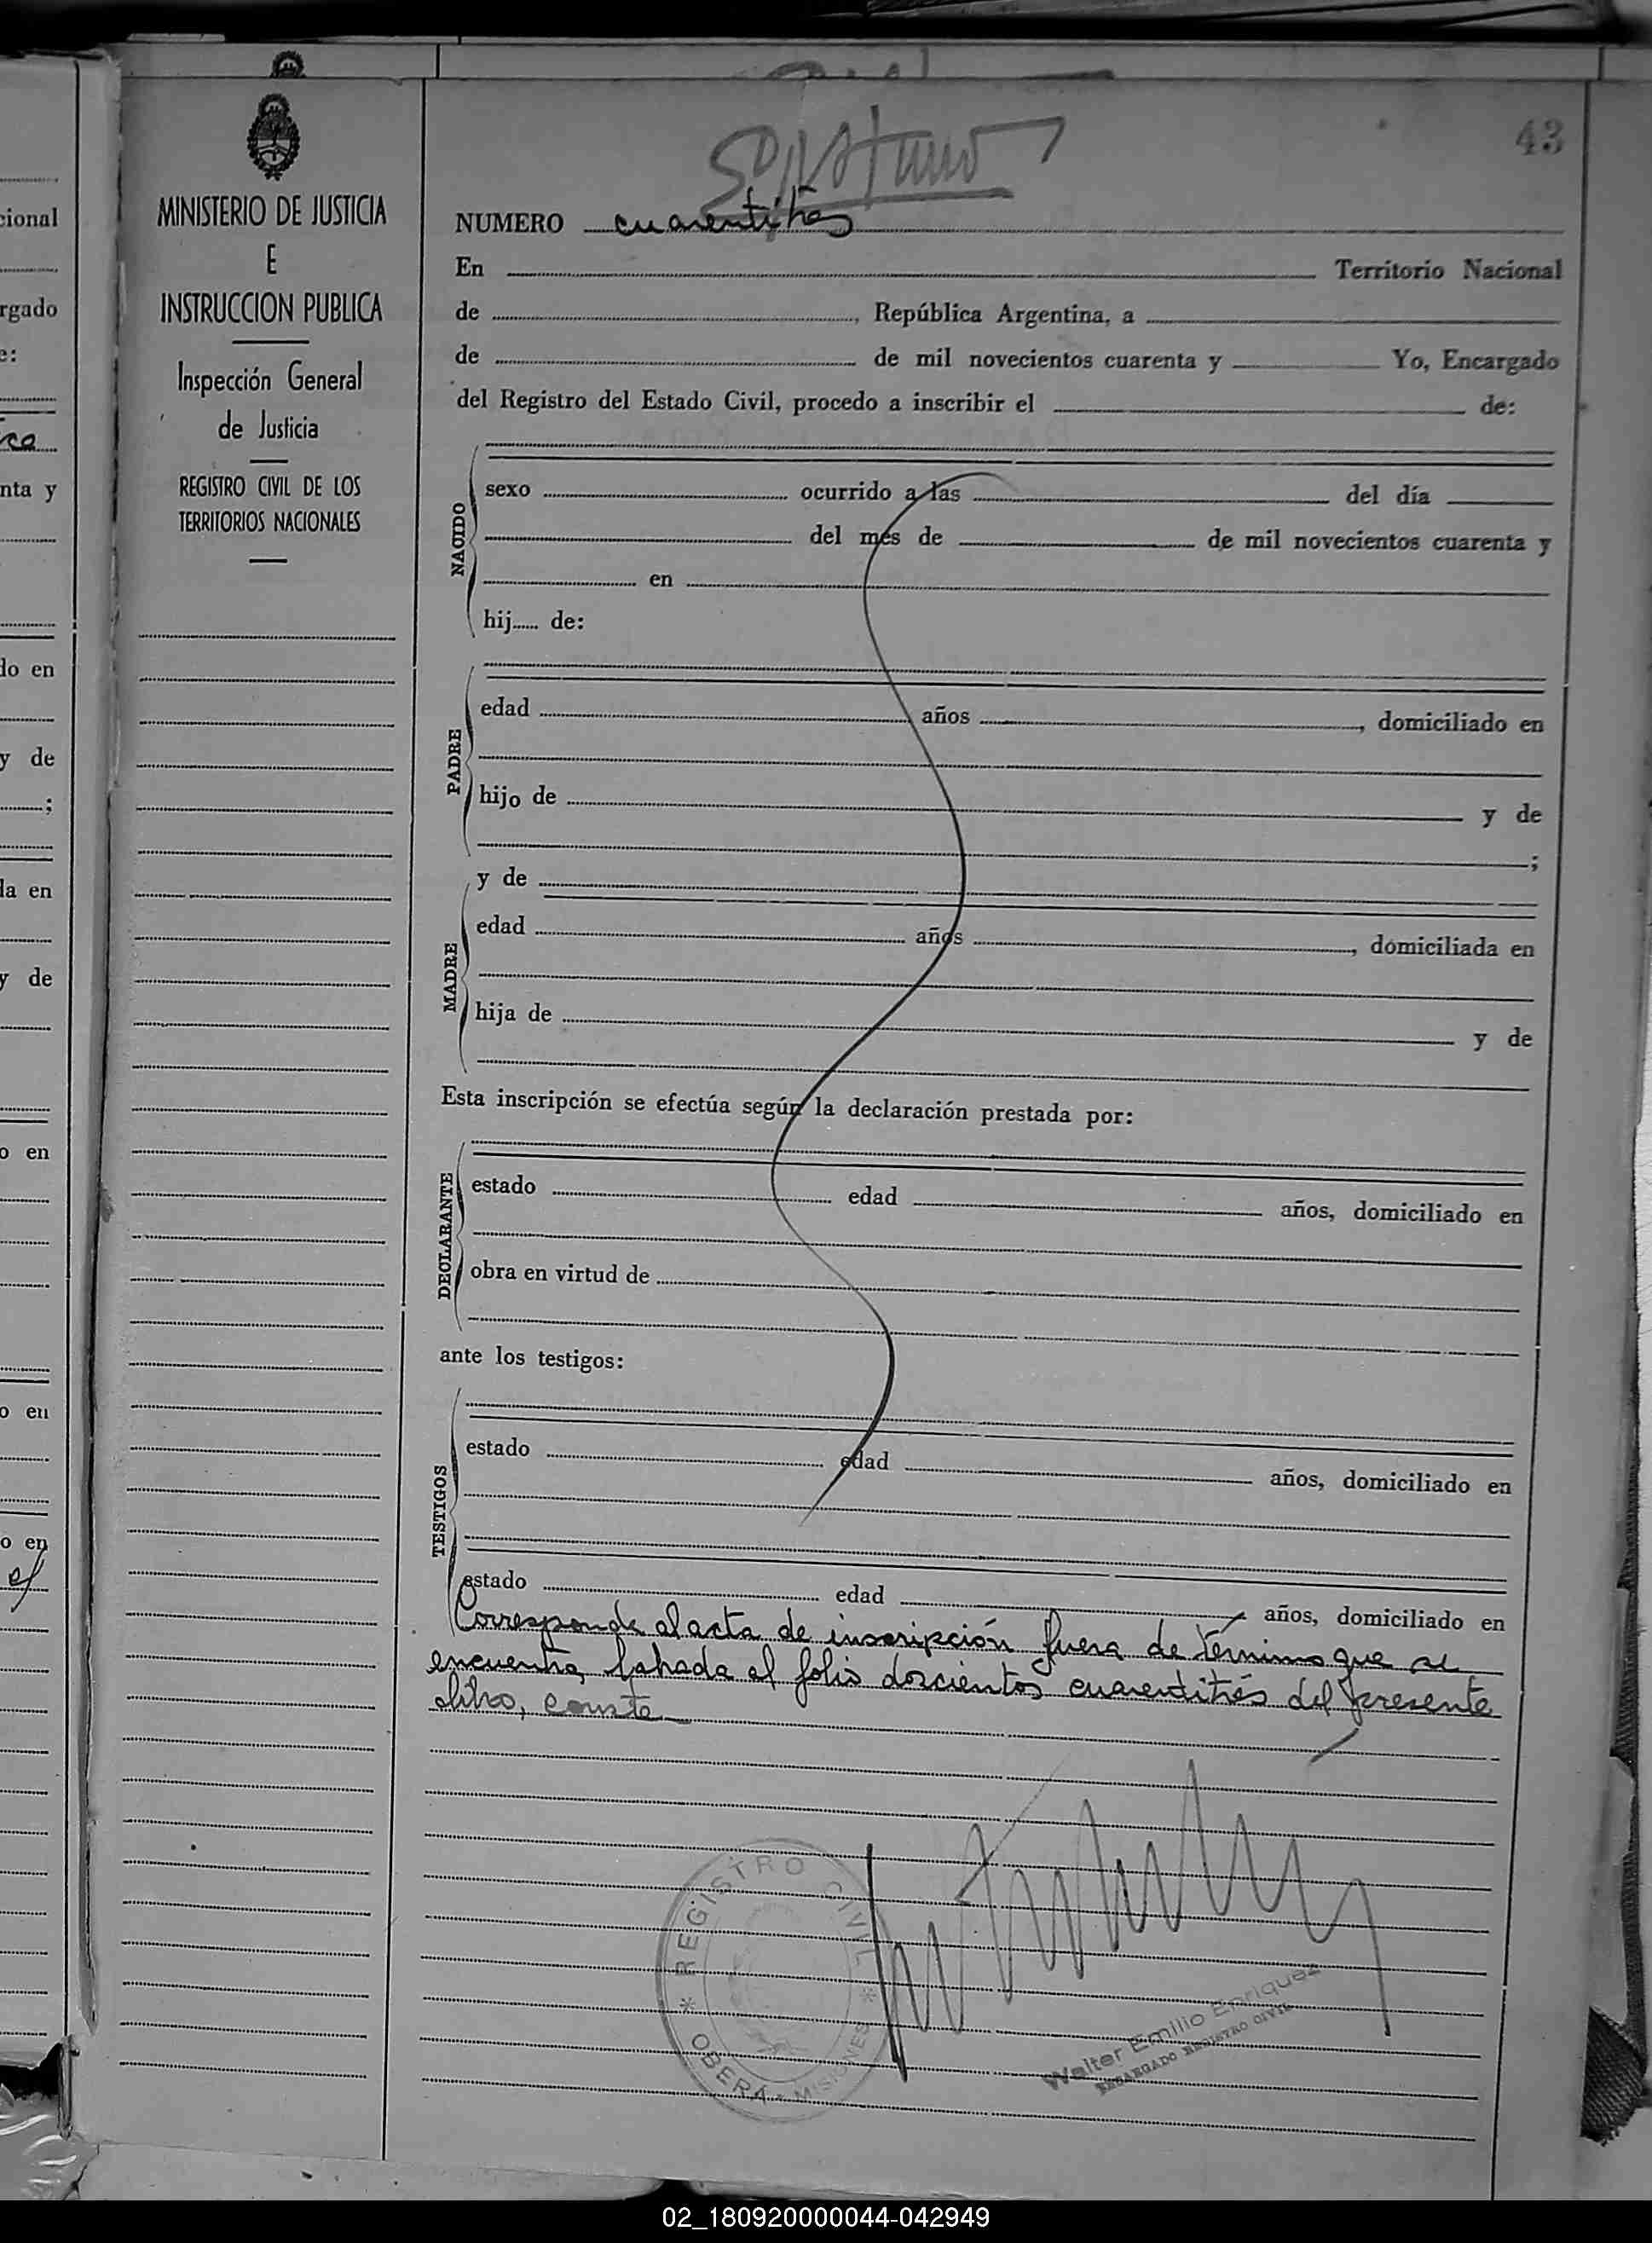 43
NUMERO cuarentitrés
En Territorio Nacional
de , República Argentina, a
de de mil novecientos cuarenta y Yo, Encargado
del Registro del Estado Civil, procedo a inscribir el de:
MINISTERIO DE JUSTICIA
E
INSTRUCCION PUBLICA
Inspección General
de Justicia
REGISTRO CIVIL DE LOS
TERRITORIOS NACIONALES
NACIDO
sexo ocurrido a las del día
del mes de de mil novecientos cuarenta y
en
hij...... de:
PADRE
edad años , domiciliado en
hijo de y de
;
y de
MADRE
edad años , domiciliada en
hija de y de
Esta inscripción se efectúa según la declaración prestada por:
DECLARANTE
estado edad años, domiciliado en
obra en virtud de
ante los testigos:
TESTIGOS
estado edad años, domiciliado en
estado edad años, domiciliado en
Corresponde al acta de inscripción fuera de término que se
encuentra labrada al folio doscientos cuarentitrés del presente
libro, conste
REGISTRO CIVIL
OBERÁ - MISIONES
Walter Emilio Enriquez
ENCARGADO REGISTRO CIVIL
cional
rgado
e:
nta y
do en
y de
;
da en
y de
o en
o en
o en
02_180920000044-042949